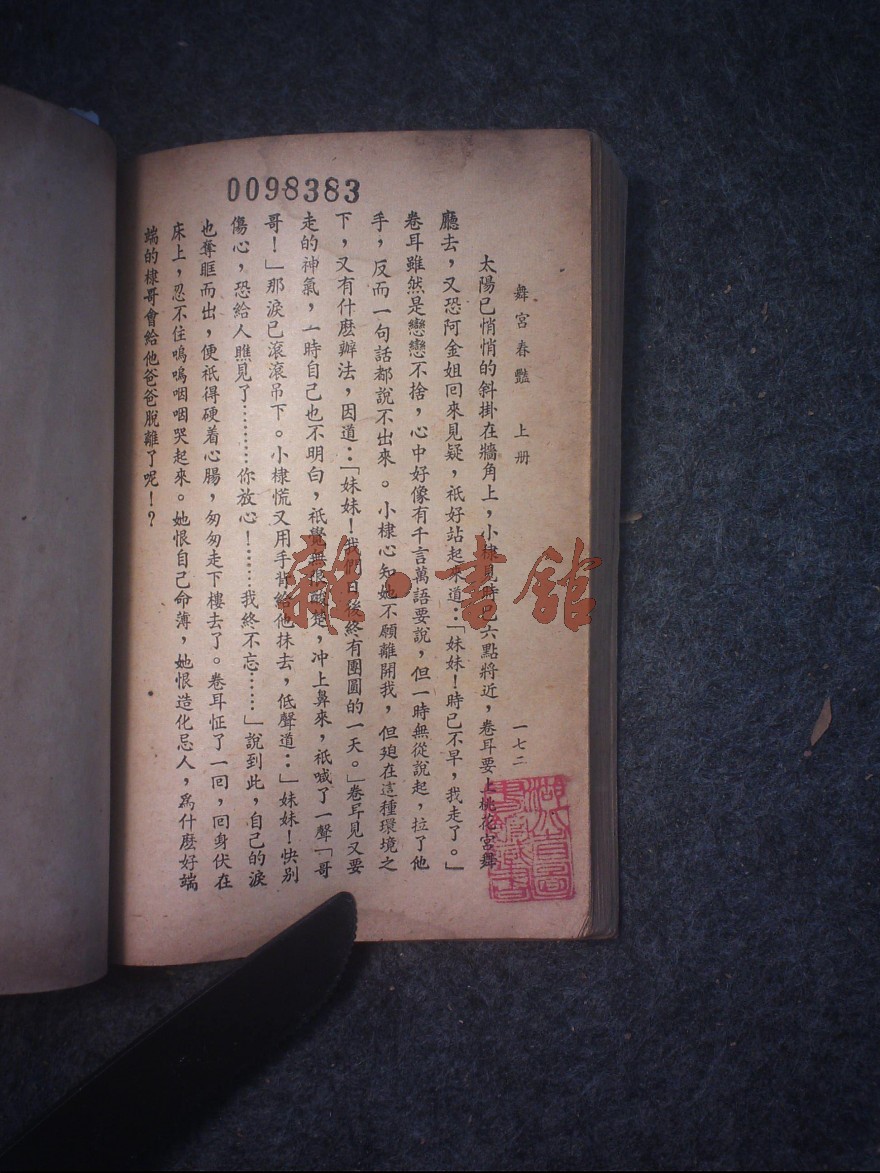 0098383
舞宮春豔　上册　一七二
太陽已悄悄的斜掛在牆角上，小棣見時已六點將近，卷耳要上桃花宮舞
廳去，又恐阿金姐回來見疑，祇好站起來道：「妹妹！時已不早，我走了。」
卷耳雖然是戀戀不捨，心中好像有千言萬語要說，但一時無從說起，拉了他
手，反而一句話都說不出來。小棣心知她不願離開我，但處在這種環境之
下，又有什麽辦法，因道：「妹妹！我們日後終有團圓的一天。」卷耳見又要
走的神氣，一時自己也不明白，祇覺無限酸楚，冲上鼻來，祇喊了一聲「哥
哥！」那淚已滾滾吊下。小棣慌又用手背給他抹去，低聲道：」妹妹！快别
傷心，恐給人瞧見了………你放心！……我終不忘……」說到此，自己的淚
也奪眶而出，便祇得硬着心腸，匆匆走下樓去了。卷耳怔了一回，回身伏在
床上，忍不住嗚嗚咽咽哭起來。她恨自己命薄，她恨造化忌人，爲什麽好端
端的棣哥會給他爸爸脫離了呢！？
雜·書館